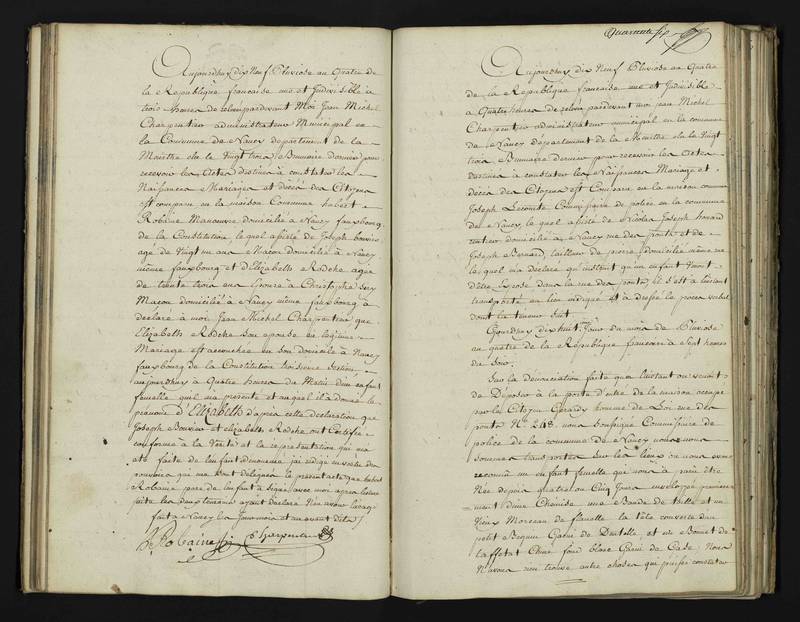 Aujourdhuy dix Neuf Pluviose an Quatre de
la Republique francaise une et Indivisible à
trois heures de relevée pardevant Moi Jean Michel
Charpentier administrateur Municipal en
la Commune de Nancy departement de la
Meurthe elu le Vingt trois Brumaire dernier pour
recevoir les Actes destinés a constater les
Naissances Mariages et décès des Citoyens
est comparu en la maison Commune hubert
Robaine Manœuvre domicilié a Nancy fauxbourg
de la Constitution, lequel assisté de Joseph Bouvier
agé de Vingt un ans Macon domicilié à Nancy
même fauxbourg et d'Elizabeth Rodeke agée
de trente trois ans Epouse à Christophe
Maçon domicilié à Nancy même fauxbourg à
declaré à moi Jean Michel Charpentier que
Elizabeth Rodeke son epouse en legitime
Mariage est accouchée en son domicile à Nancy
fauxbourg de la Constitution troisieme Section,
aujourdhuy à Quatre heures du Matin d'un enfant
femelle qu'il m'a presenté et auquel il à donné le
prenom d'Elizabeth d'apres cette declaration que
Joseph Bouvier et elizabeth Rodeke ont Certifié
conforme à la Verité et la représentation qui m'a
été faite de l'enfant dénommé j'ai redigé en vertu des
pouvoirs qui me sont délégués le present acte que hubert
Robaine pere de l'enfant à signé avec moi apres lecture
faite les deux temoins ayant declaré Ne savoir
fait a Nancy les Jour mois et an avant dits
h Robaine Charpentier
Quarante six
Aujourdhuy dix Neuf Pluviose an Quatre
de la Republique francaise une et Indivisible
a Quatre heures de relevée pardevant moi jean Michel
Charpentier administrateur municipal en la commune
de Nancy département de la Meurthe elu le Vingt
trois Brumaire dernier pour recevoir les Actes
destinés à constater les Naissances Mariages et
décès des Citoyens est Comparu en la maison commune
Joseph Lecomte Commissaire de police en la commune
de Nancy, lequel assisté de Nicolas Joseph
rentier domicilié à Nancy rue des ponts et de
Joseph Bernard, tailleur de pierre, domicilié même rue
lequel m'a declaré qu'instruit qu'un enfant Venoit
d'être Exposé dans la rue des ponts, il s'est à l'instant
transporté au lieu indiqué et à dressé le proces verbal
dont la teneur suit.
Cejourdhuy dix huit Jour du mois de Pluviose
an quatre de la République francaise à sept heures
du Soir.
Sur la dénonciation faite que l'instant on venoit
de Deposer à la porte d'entrée de la maison occupée
par le Citoyen Gerardy homme de Loi rue des
ponts No. 248. nous soussigné Commissaire de
police de la commune de Nancy nous nous
sommes transportés Sur les lieux ou nous avons
reconnu un enfant femelle qui nous à paru être
Née depuis quatre ou Cinq Jours enveloppé premiere
ment d'une Chemise une Bande de toille et un
Vieux Morceau de flanelle la tête couverte d'un
petit Beguin Garni de Dentelle et un Bonnet de
taffetat Chiné fond blanc Garni de Gaze Nous
N'avons rien trouvé autre choses qui puisse constater